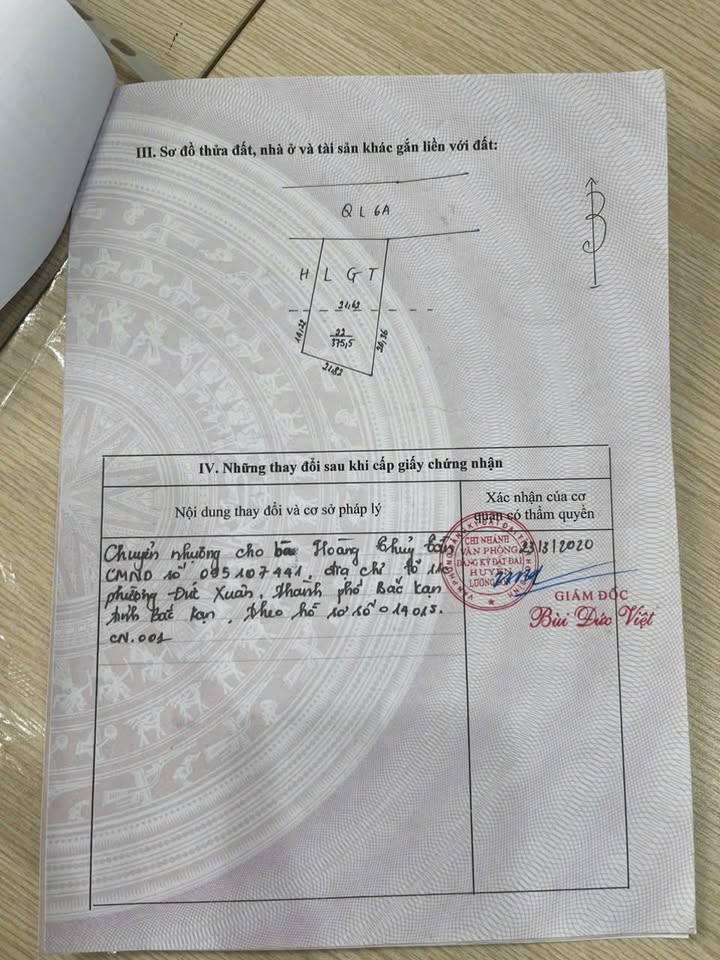 III. Sơ đồ thửa đất, nhà ở và tài sản khác gắn liền với đất:
QL 6A
H L G T
21,62
14,22
22
375,5
20,36
21,82
IV. Những thay đổi sau khi cấp giấy chứng nhận
Nội dung thay đổi và cơ sở pháp lý
Xác nhận của cơ
quan có thẩm quyền
Chuyển nhượng cho bà Hoàng Thuỷ
CMND số 095107441, địa chỉ tổ
phường Đức Xuân, thành phố Bắc Kạn
tỉnh Bắc Kạn, theo hồ sơ số 014015.
CN.001
23/3/2020
CHI NHÁNH
VĂN PHÒNG
ĐĂNG KÝ ĐẤT ĐAI
HUYỆN
LƯƠNG
GIÁM ĐỐC
Bùi Đức Việt